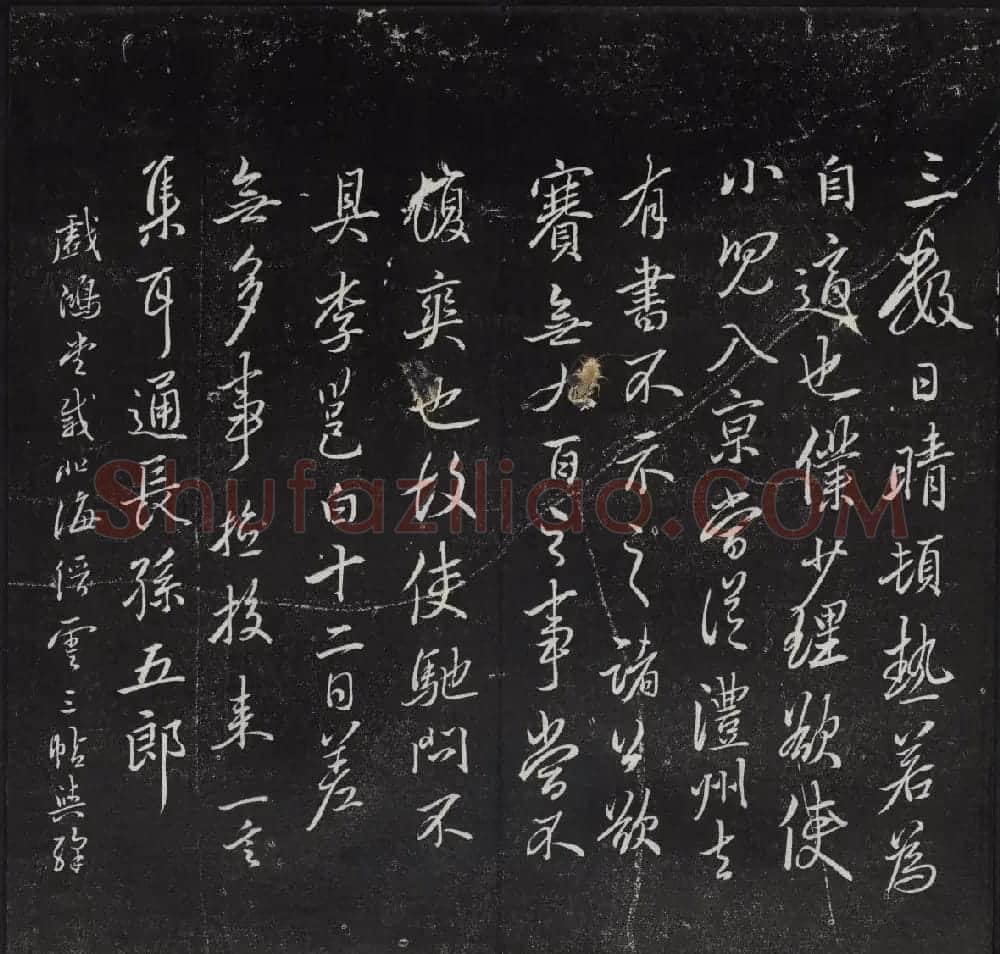 三數日晴頓熱若為
自適也僕少理欲使
小兒入京嘗從澧州去
有書不示之諸公欲
賽無九百之事嘗不
復奕也故使馳問不
具李邕白十二日差
無多事樞拔來一言
集耳通長孫五郎
戲鴻堂載北海縉雲三帖與
Shufaziliao.COM